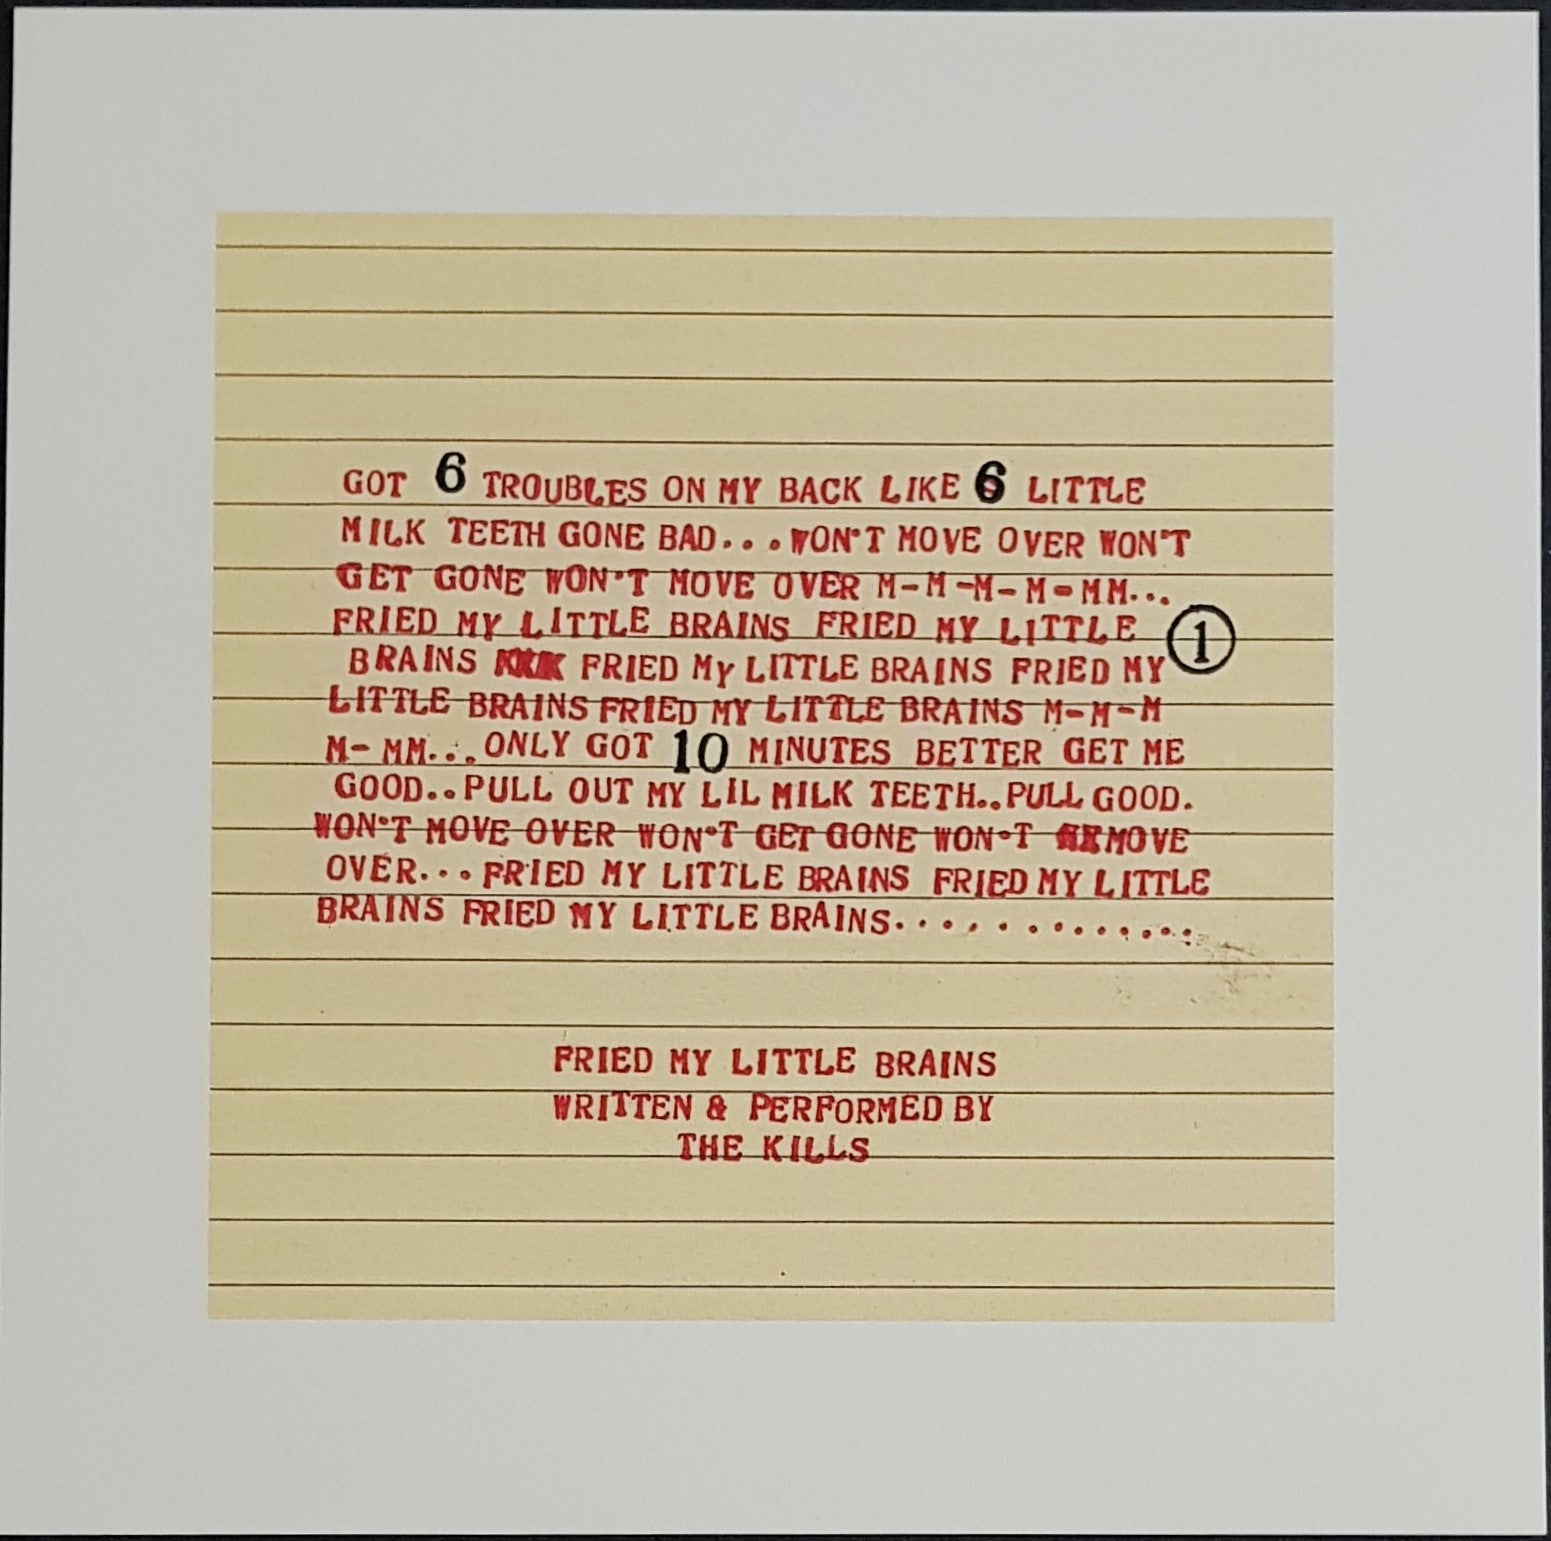 GOT 6 TROUBLES ON MY BACK LIKE 6 LITTLE
MILK TEETH GONE BAD...WON'T MOVE OVER WON'T
GET GONE WON'T MOVE OVER M-M-M-M-MM...
FRIED MY LITTLE BRAINS FRIED MY LITTLE
1
BRAINS FRIED My LITTLE BRAINS FRIED MY
LITTLE BRAINS FRIED MY LITTLE BRAINS M-M-M
M-MM...ONLY GOT 10 MINUTES BETTER GET ME
GOOD..PULL OUT MY LIL MILK TEETH..PULL GOOD.
WON'T MOVE OVER WON'T GET GONE WON'T MOVE
OVER...FRIED MY LITTLE BRAINS FRIED MY LITTLE
BRAINS FRIED MY LITTLE BRAINS..............
FRIED MY LITTLE BRAINS
WRITTEN & PERFORMED BY
THE KILLS